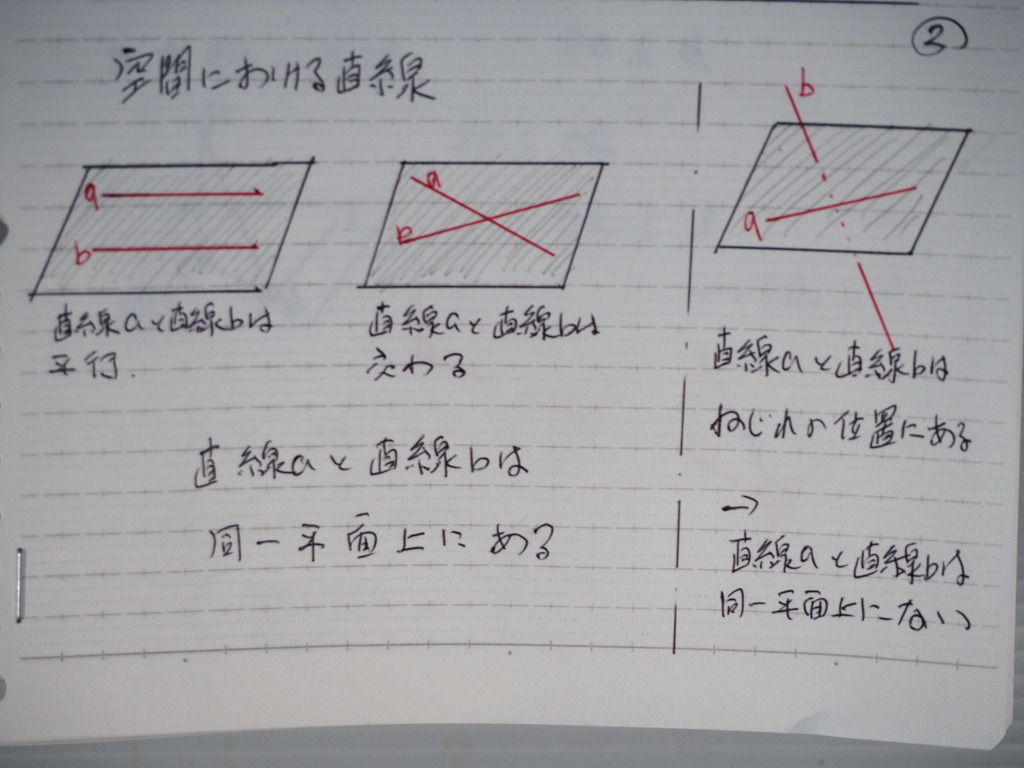 ②
空間における直線
a
b
直線aと直線bは
平行.
a
b
直線aと直線bは
交わる
直線aと直線bは
同一平面上にある
b
a
直線aと直線bは
ねじれの位置にある
→
直線aと直線bは
同一平面上にない